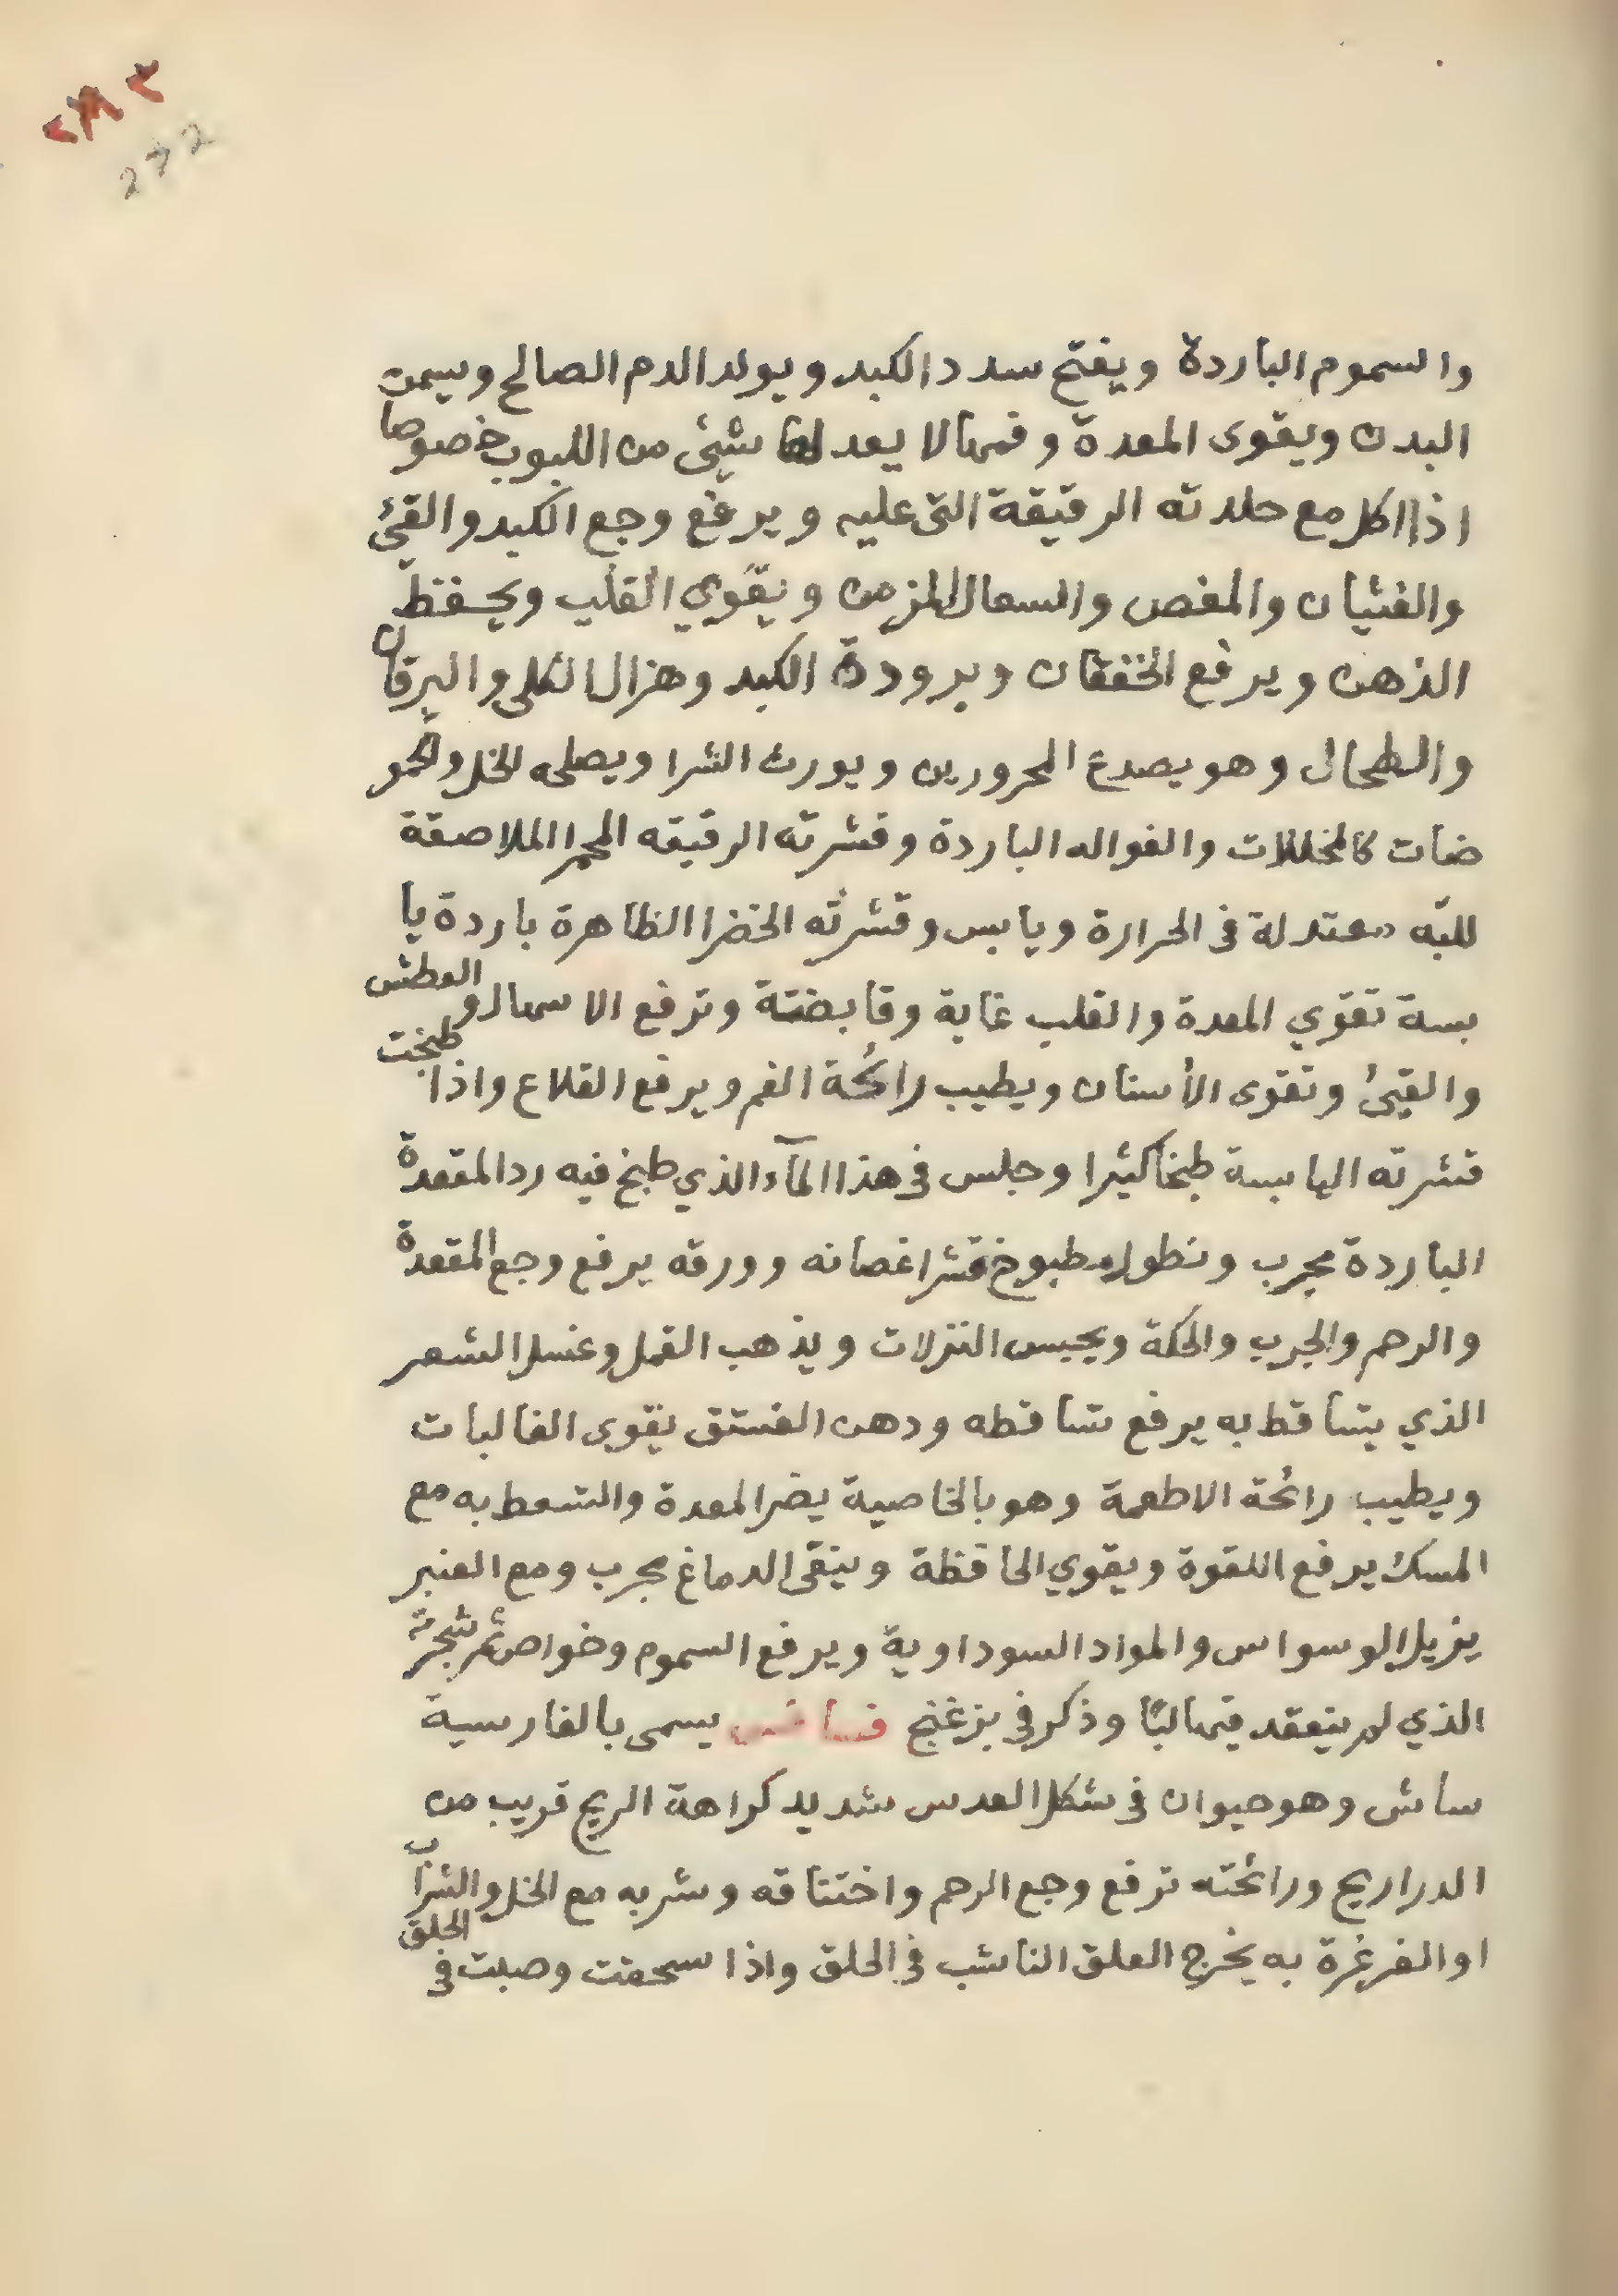 ٢٧٢
272
والسموم الباردة ويفتح سدد الكبد ويولد الدم الصالح ويسمن
البدن ويقوى المعدة وقيها لا يعدلها شيئ من اللبوب خصوصا
اذا اكل مع جلدته الرقيقة التى عليه ويرفع وجع الكبد والقيئ
والغثيان والمغص والسعال المزمن ويقوي القلب ويحفظ
الذهن ويرفع الخفقان وبرودة الكبد وهزال الكلى واليرقان
والطحال وهو يصدع المحرورين ويورث الشرا ويصلحه الخل والحمو
ضات كالمخللات والفواكه الباردة وقشرته الرقيقه الحمرا الملاصقة
للبّه معتدلة فى الحرارة ويابس وقشرته الخضرا الظاهرة باردة يا
بسة تقوّي المعدة والقلب غاية وقابضته وترفع الاسهال والعطش
والقيئ وتقوى الأسنان ويطيب رائحة الفم ويرفع القلاع واذا طبخت
قشرته اليابسة طبخا كثيرا وجلس فى هذا المآء الذي طبخ فيه رد المقعدة
الباردة مجرب ونطول مطبوخ قشر اغصانه وورقه يرفع وجع المقعدة
والرحم والجرب والحكة ويحبس النزلات ويذهب القمل وغسل الشعر
الذي يتساقط به يرفع تساقطه ودهن الفستق يقوى الغاليات
ويطيب رائحة الاطعمة وهو بالخاصية يضر المعدة والتسعط به مع
المسك يرفع اللقوة ويقوي الحافظة وينقى الدماغ مجرب ومع العنبر
يزيل الوسواس والمواد السوداوية ويرفع السموم وخواص ثمر شجرته
الذي لم ينعقد فيها لبًا وذكر في بزغنج فسافس يسمى بالفارسية
ساس وهو حيوان فى شكل العدس شديد كراهة الريح قريب من
الدراريح ورائحته ترفع وجع الرحم واختناقه وشربه مع الخل والشراب
او الغرغرة به يخرج العلق الناشب في الحلق واذا سحقت وصبت فى الحلق